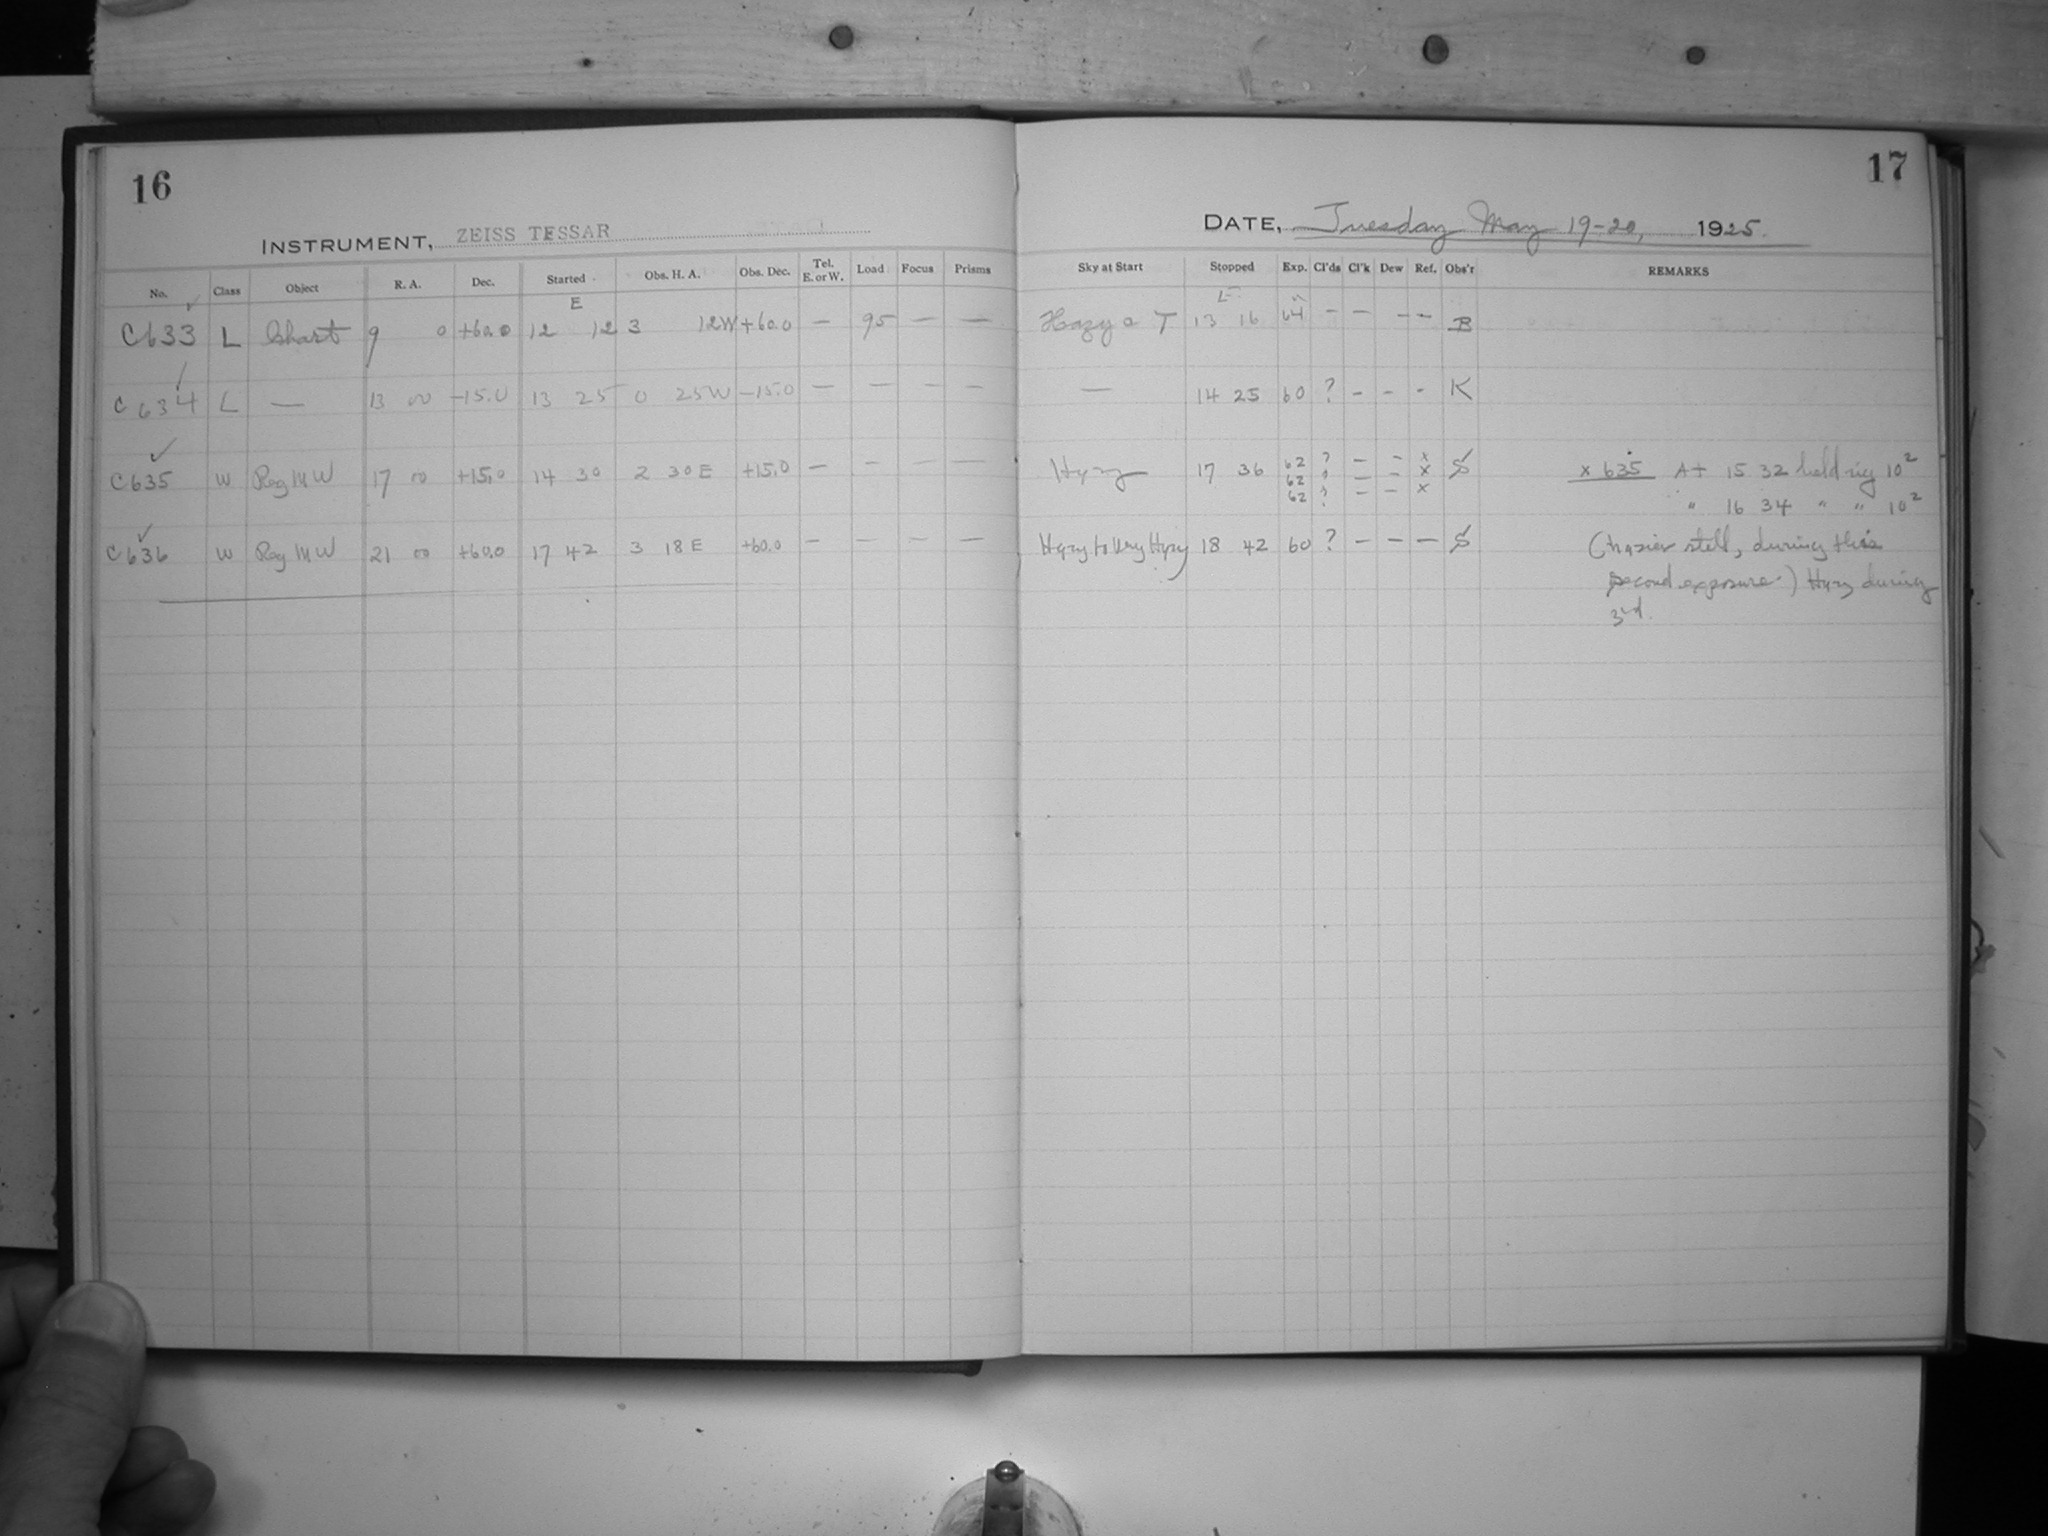 16
INSTRUMENT, ZEISS TESSAR
No. Class Object R. A. Dec. Started Obs. H. A. Obs. Dec. Tel. E. or W. Load Focus Prisms
E
C633 L Chart 9 0 +60.0 12 12 3 12W +60.0 — 95 — —
C634 L — 13 00 -15.0 13 25 0 25W -15.0 — — — —
C635 W Reg MW 17 00 +15.0 14 30 2 30E +15.0 — — — —
C636 W Reg MW 21 00 +60.0 17 42 3 18E +60.0 — — — —
17
DATE, Tuesday May 19-20, 1925.
Sky at Start Stopped Exp. Cl'ds Cl'k Dew Ref. Obs'r REMARKS
E
Hazy a T 13 16 64 — — — — B
— 14 25 60 ? — — - K
Hazy 17 36 62 ? — — x S x 635 At 15 32 held rig 10²
62 ? — — x
62 ? — — x " 16 34 " " 10²
Hazy to Very Hazy 18 42 60 ? — — — S (hazier still, during this
second exposure) Hazy during
3rd.